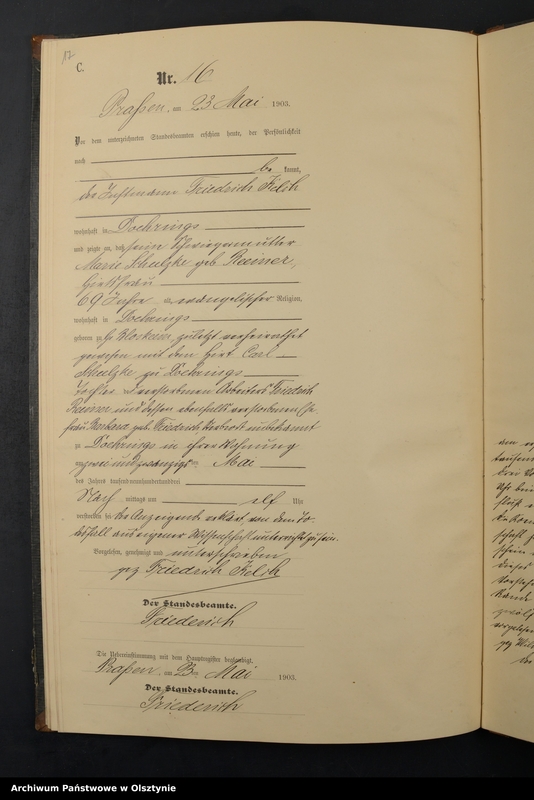 17
C.
Nr. 16
Praßen, am 23 Mai 1903.
Vor dem unterzeichneten Standesbeamten erschien heute, der Persönlichkeit
nach
be kannt,
der Instmann Friedrich Felsch
wohnhaft in Doehrings
und zeigte an, daß seine Schwiegermutter
Marie Schulzke geb. Reimer,
Hirtsfrau
69 Jahre evangelischer Religion,
wohnhaft in Doehrings
geboren zu Gr. Blockeim, zuletzt verheirathet
gewesen mit dem Hirt Carl
Schulzke zu Doehrings
Tochter des verstorbenen Arbeiters Friedrich
Reimer und dessen ebenfalls verstorbenen Ehe
frau Barbara geb. Friedrich Sterbeort unbekannt
zu Doehrings in ihrer Wohnung
am zwei und zwanzigsten Mai
des Jahres tausend neunhundert und drei
Nach mittags um elf Uhr
verstorben sei. Der Anzeigende erklärt von dem To-
desfall aus eigener Wissenschaft unterrichtet zu sein.
Vorgelesen, genehmigt und unterschrieben
gez Friedrich Felsch
Der Standesbeamte.
Friederich
Die Uebereinstimmung mit dem Hauptregister beglaubigt.
Praßen, am 23ten Mai 1903.
Der Standesbeamte.
Friederich
Archiwum Państwowe w Olsztynie